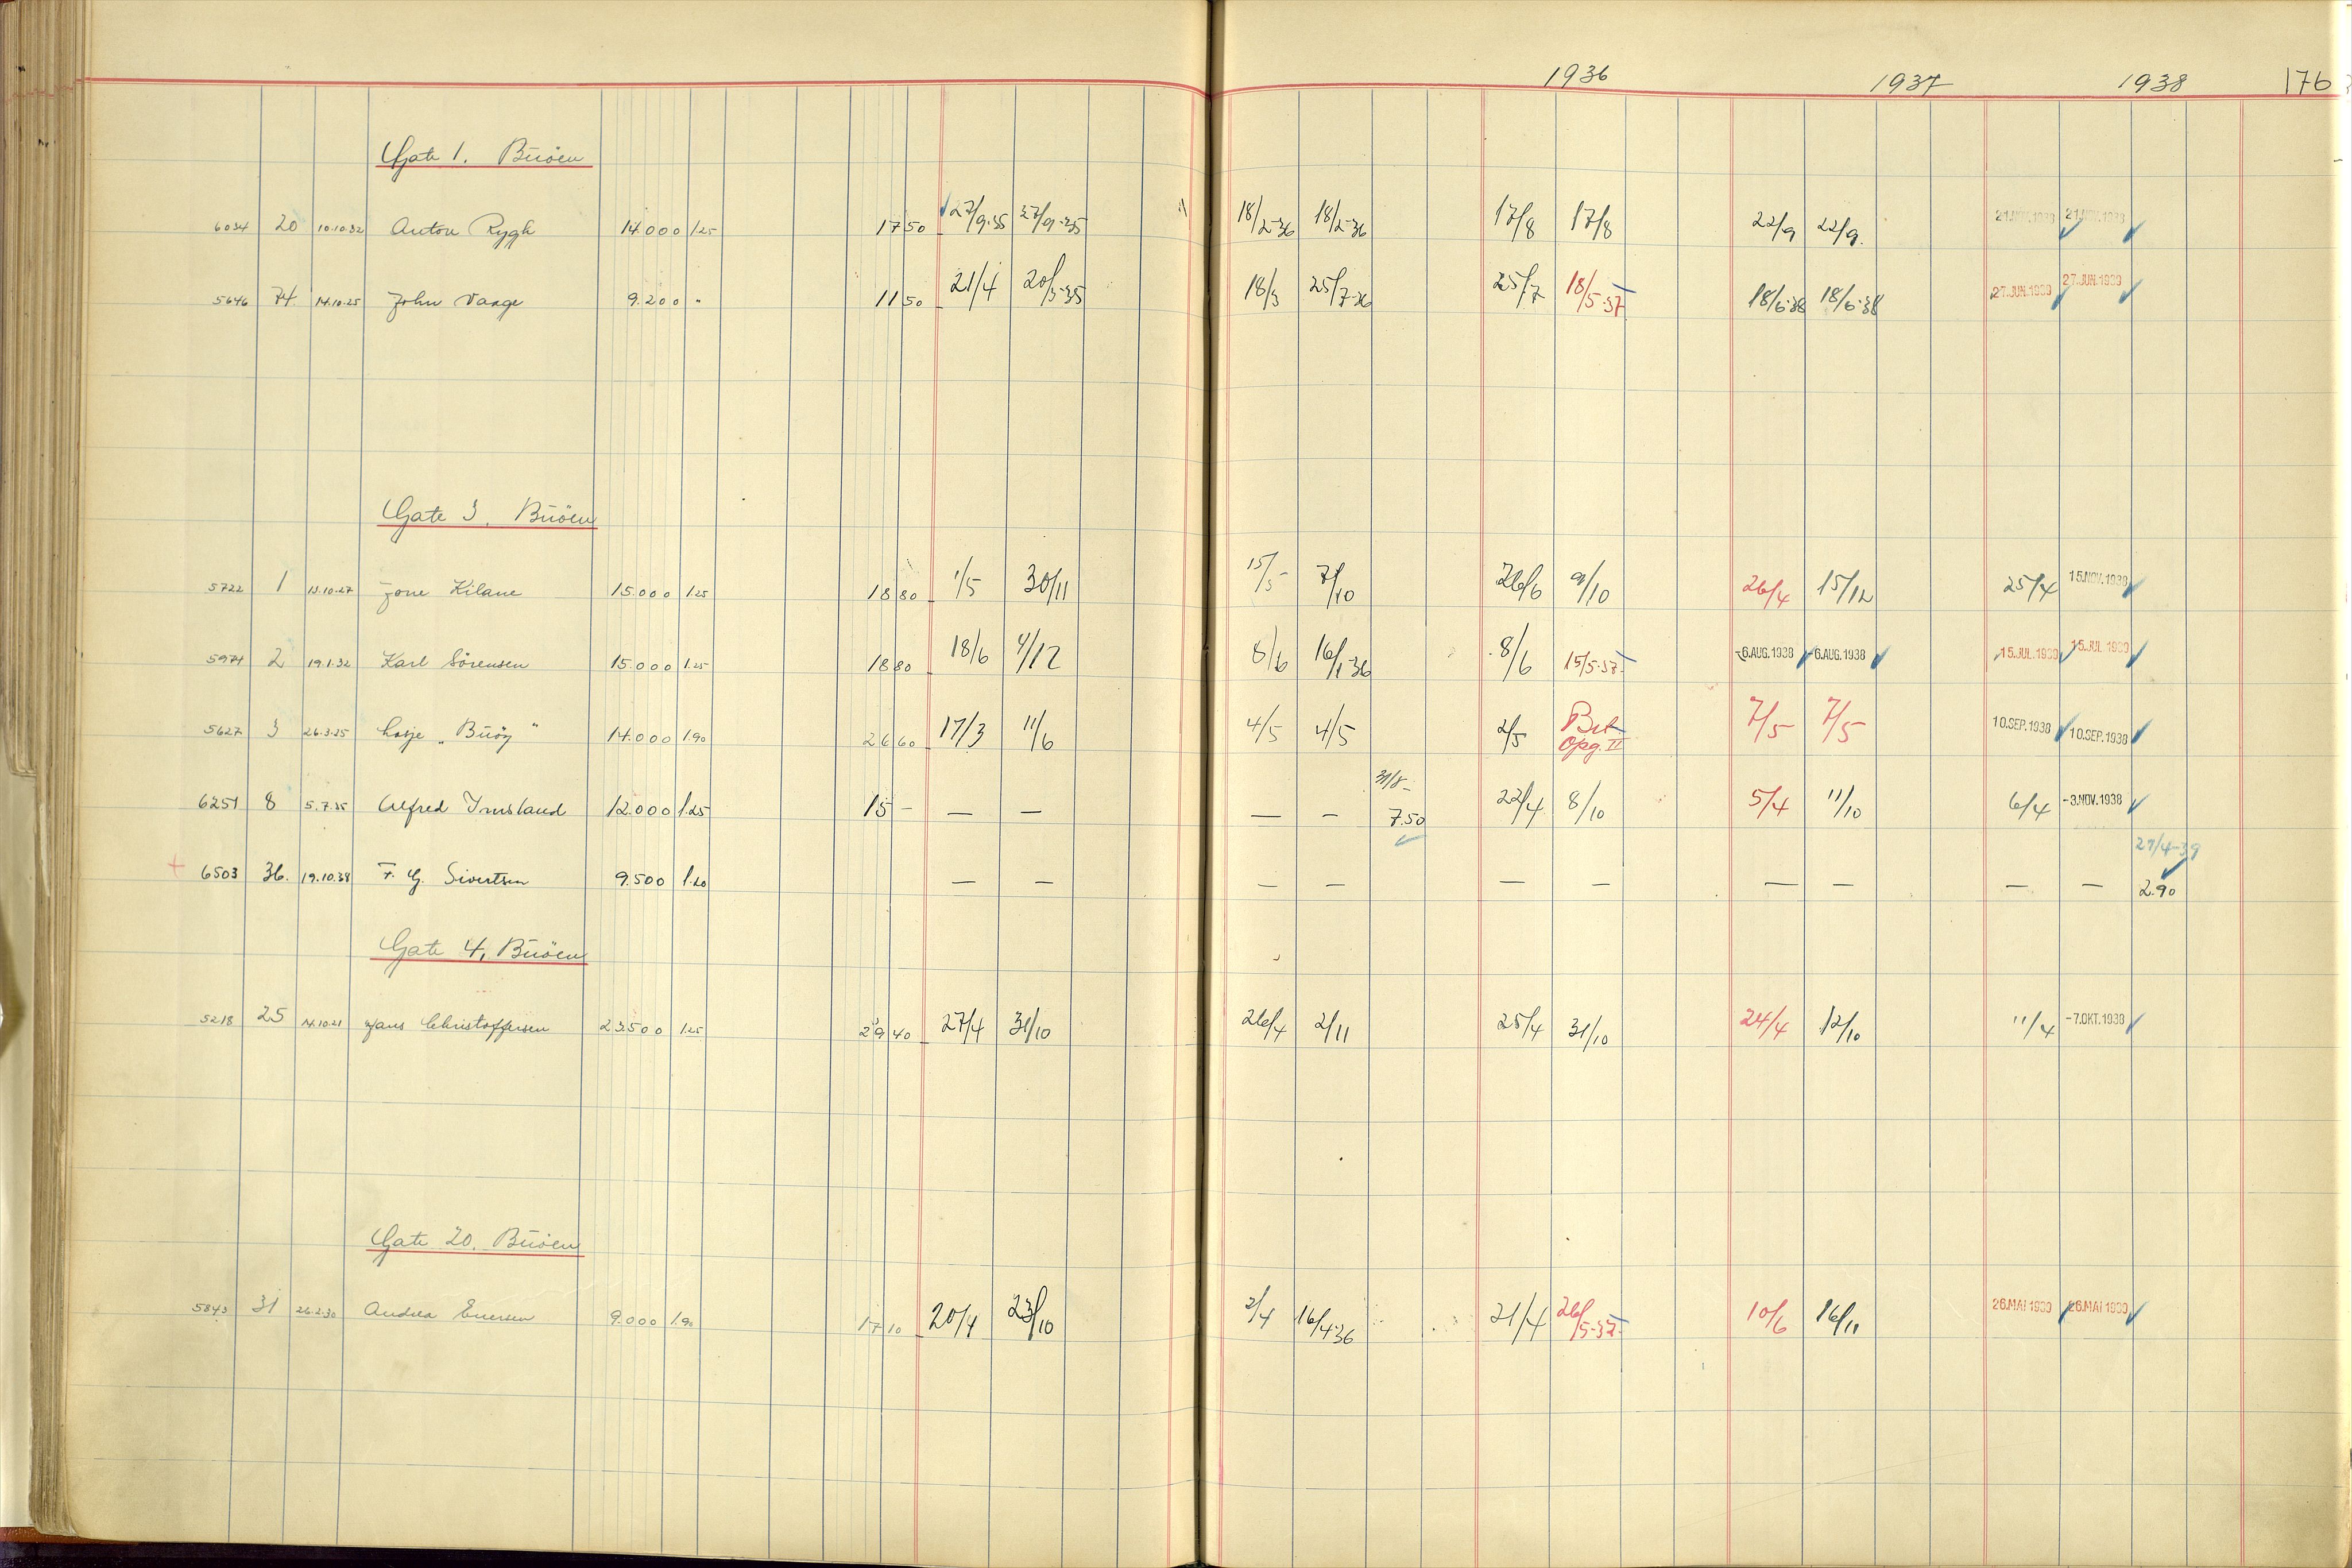 1936 1937 1938 176
Gate 1. Buöen
6034 20 10.10.32 Anton Rygh 14.000 1.25 17 50 27/9.35 27/9-35 18/2-36 18/2-36 17/8 17/8 22/9 22/9. 21.NOV.1938 21.NOV.1938
5646 74 14.10.25 John Vaage 9.200 " 11 50 21/4 20/3-35 18/3 25/7-36 25/7 18/5-37 18/6-38 18/6-38 27.JUN.1939 27.JUN.1939
Gate 3. Buöen
5722 1 13.10.27 Jone Kilane 15.000 1.25 18 80 1/5 30/11 15/5 7/10 26/6 9/10 26/4 15/12 25/4 15.NOV.1938
5974 2 19.1.32 Karl Sörensen 15.000 1.25 18 80 18/6 4/12 8/6 16/1-36 8/6 15/5-37 -6.AUG.1938 -6.AUG.1938 15.JUL.1939 15.JUL.1939
5627 3 26.3.25 Losje „Buöy" 14.000 1.90 26 60 17/3 11/6 4/5 4/5 2/5 Bet 7/5 7/5 10.SEP.1938 10.SEP.1938
Opg. II
31/8-
6251 8 5.7.35 Alfred Imsland 12.000 1.25 15 - — — — — 7.50 22/4 8/10 5/4 11/10 6/4 -3.NOV.1938
27/4-39
6503 36. 19.10.38 F. G. Sivertsen 9.500 1.20 — — — — — — — — — — 2.90
Gate 4, Buöen
5218 25 14.10.21 Hans Christoffersen 23500 1.25 29 40 27/4 31/10 26/4 2/11 25/4 31/10 24/4 12/10 11/4 -7.OKT.1938
Gate 20. Buöen
5843 31 26.2.30 Andrea Enersen 9.000 1.90 17 10 20/4 23/10 2/4 16/4-36 21/4 26/5-37 10/6 16/11 26.MAI 1939 26.MAI 1939